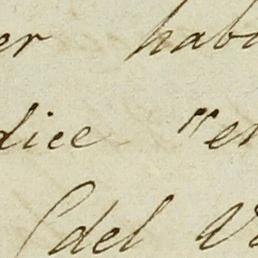 er haba
dice "en
(del V